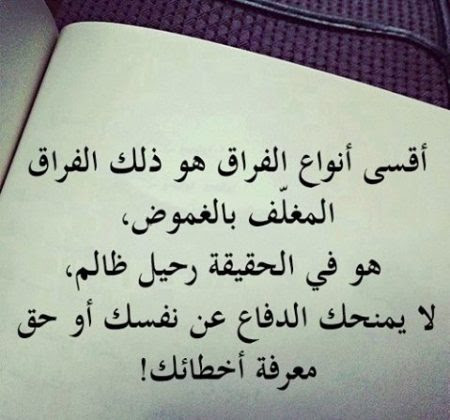 أقسى أنواع الفراق هو ذلك الفراق
المغلّف بالغموض،
هو في الحقيقة رحيل ظالم،
لا يمنحك الدفاع عن نفسك أو حق
معرفة أخطائك!